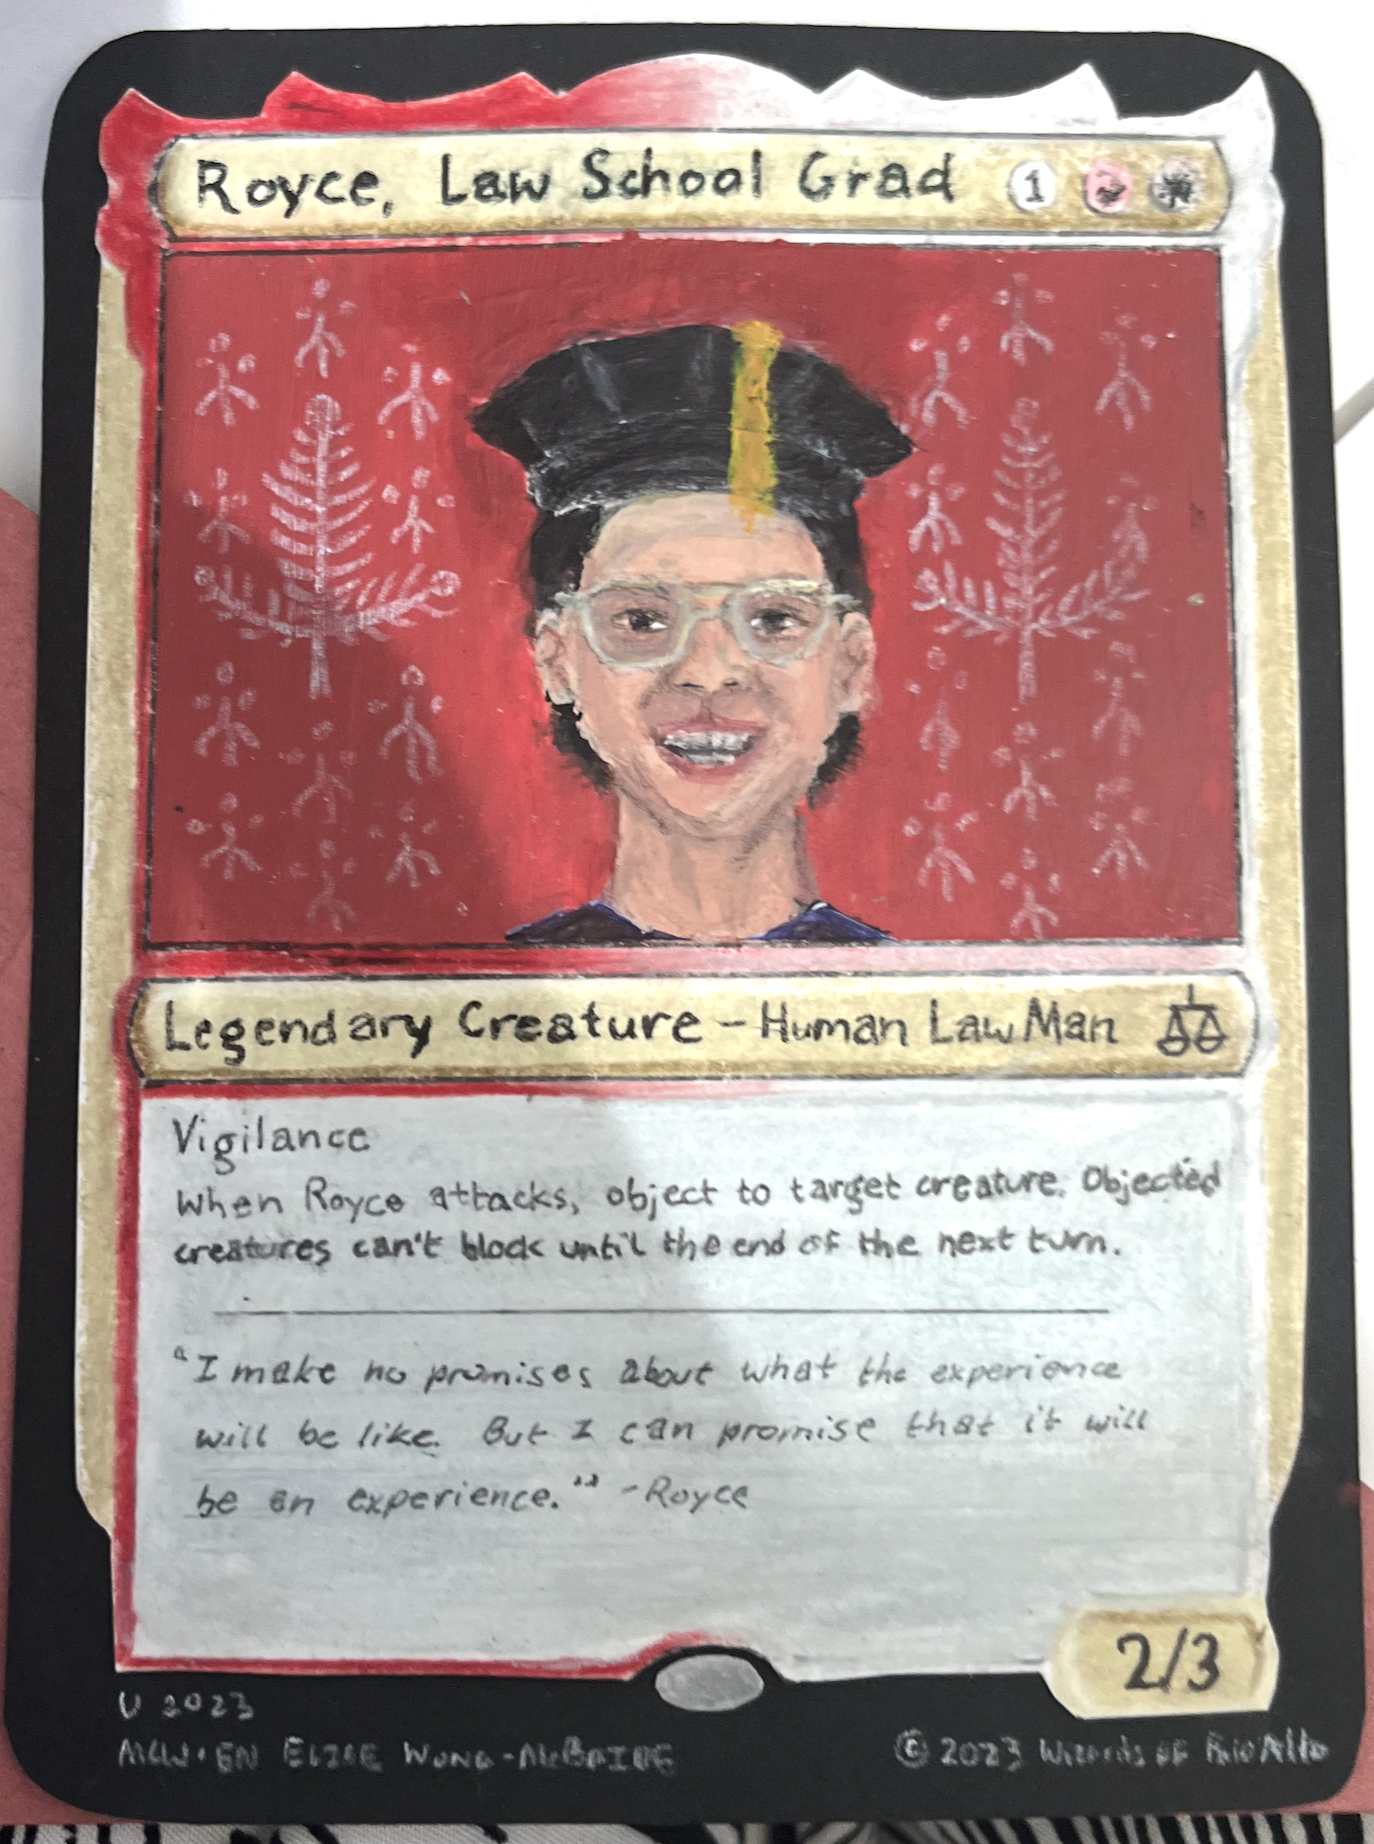 Royce, Law School Grad 1
Legendary Creature - Human Law Man
Vigilance
When Royce attacks, object to target creature. Objected
creatures can't block until the end of the next turn.
"I make no promises about what the experience
will be like. But I can promise that it will
be an experience." -Royce
2/3
U 2023
MCW • EN ELISE WONG-McBRIDE
© 2023 Wizards of Palo Alto